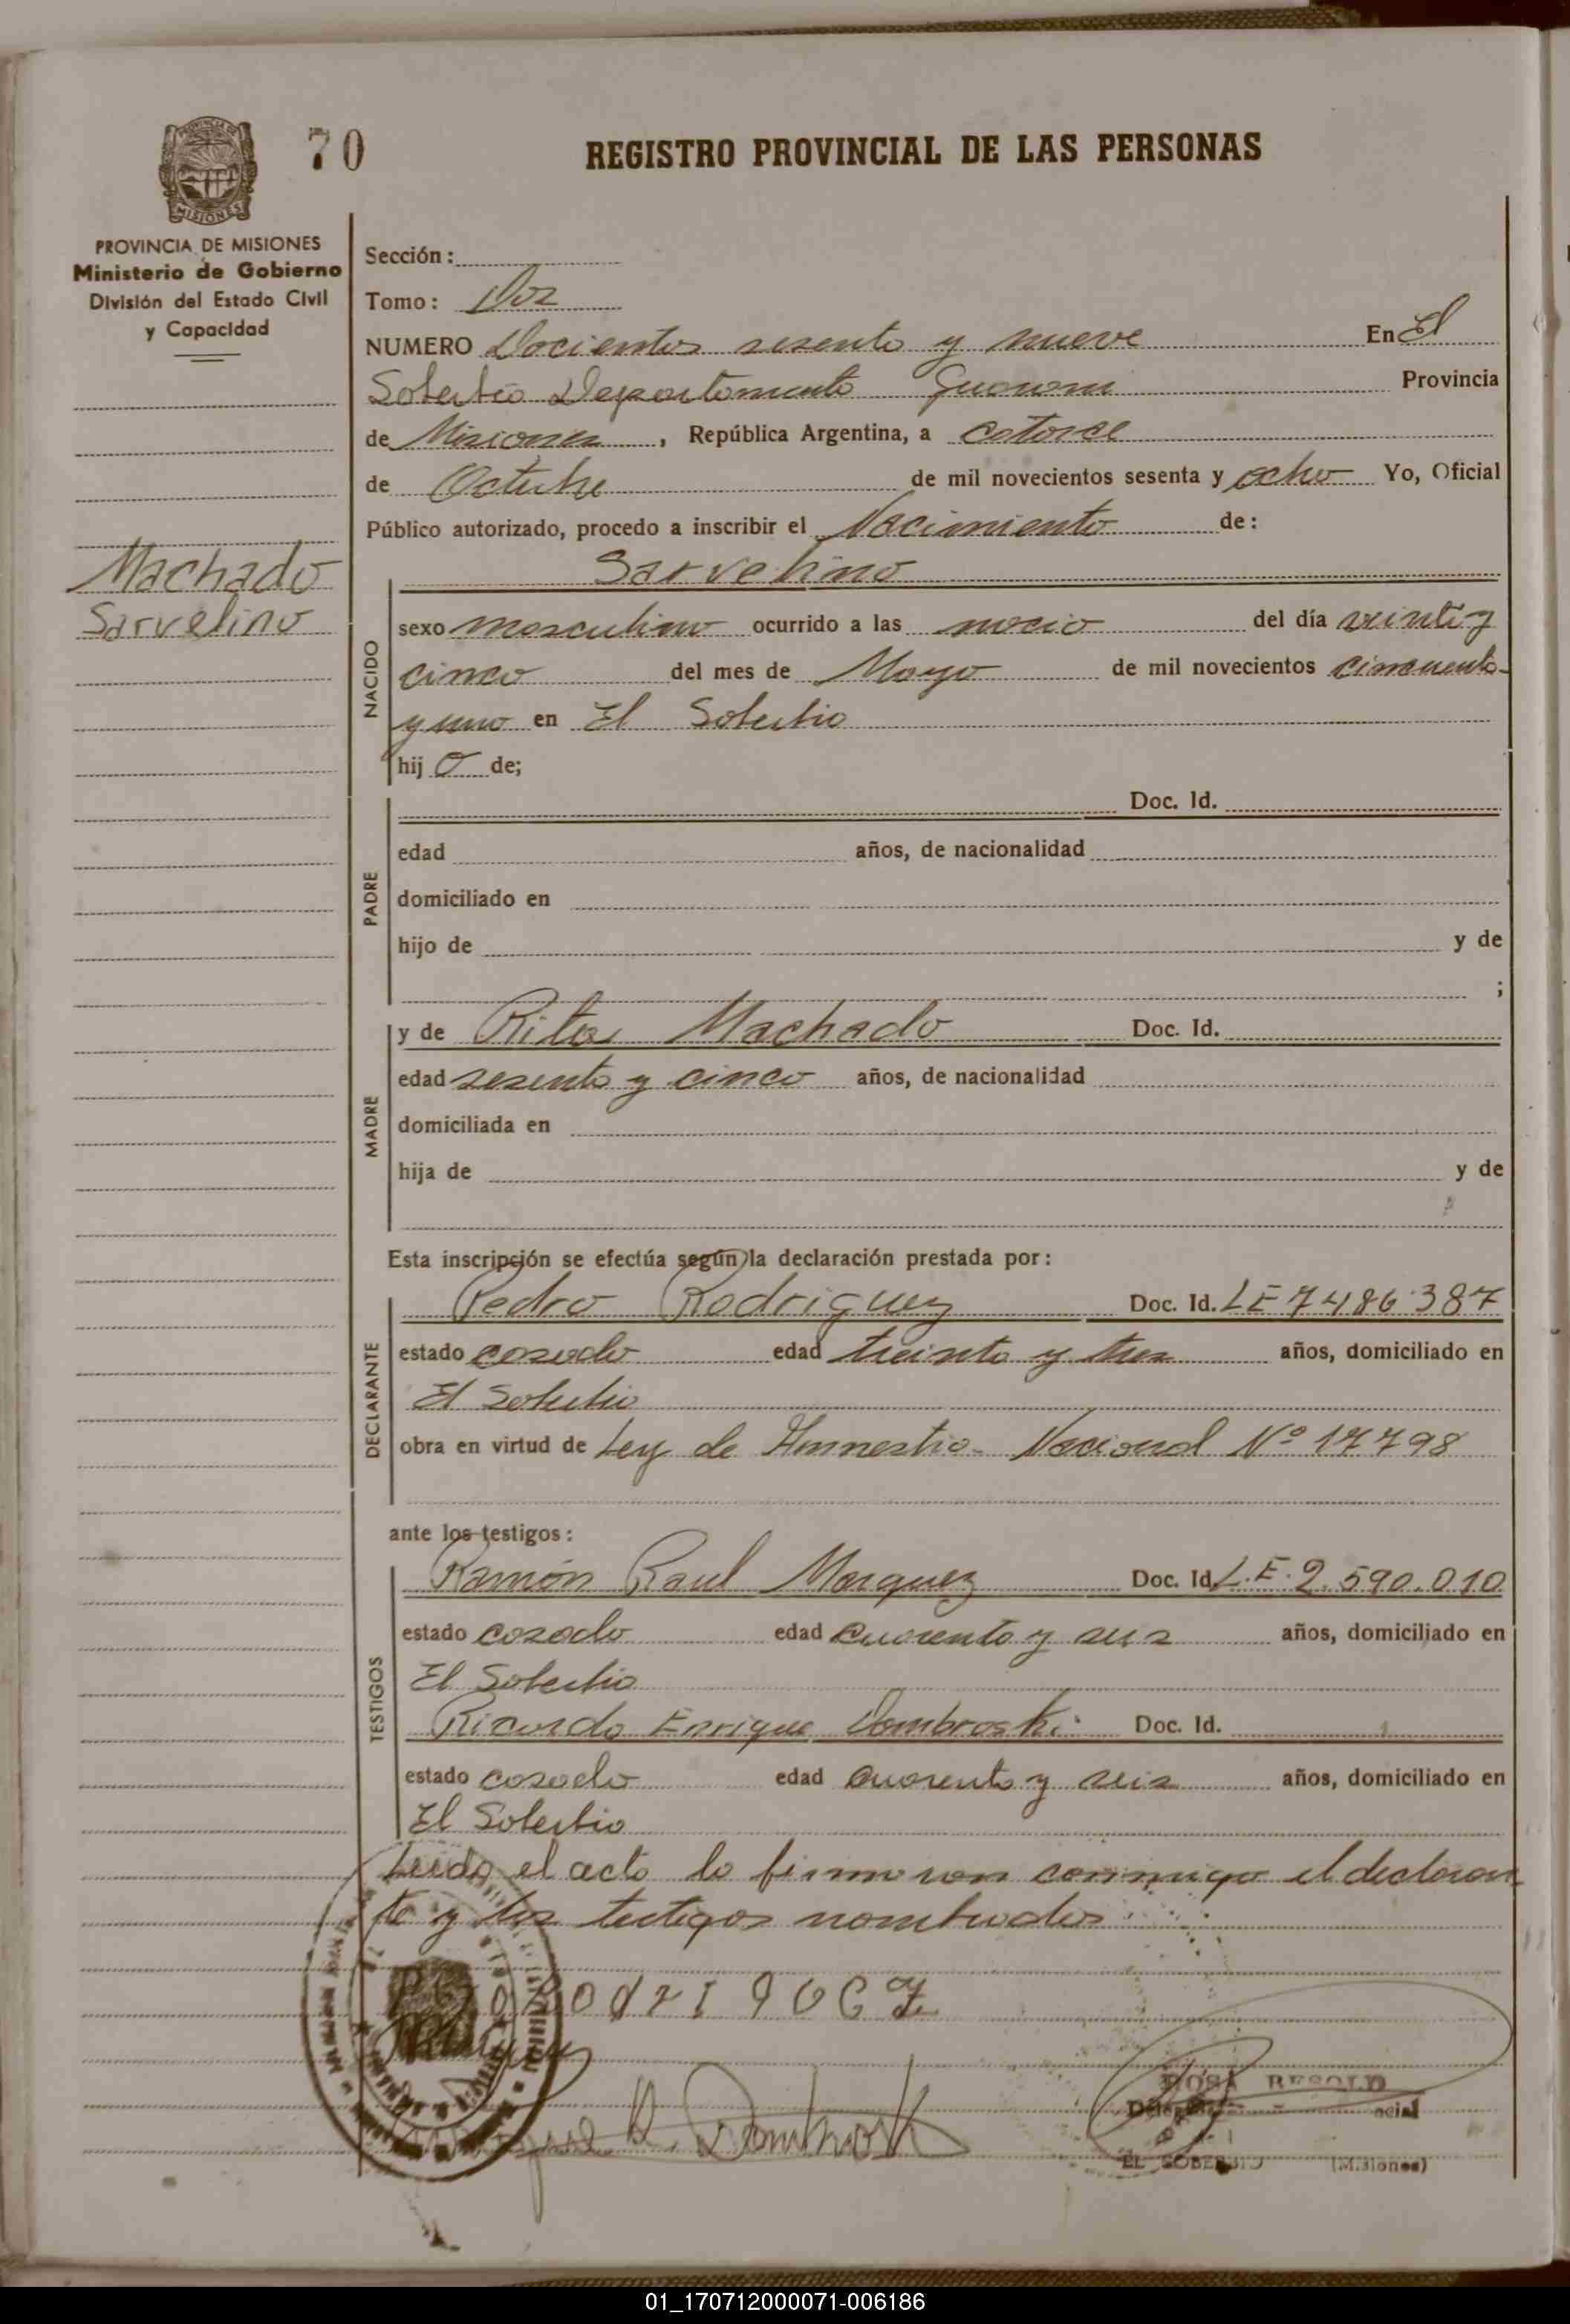 70
REGISTRO PROVINCIAL DE LAS PERSONAS
MISIONES
PROVINCIA DE MISIONES
Ministerio de Gobierno
División del Estado Civil
y Capacidad
Machado
Sarvelino
Sección:
Tomo: Dos
NUMERO Docientos sesenta y nueve En El
Soberbio Departamento Guarani Provincia
de Misiones, República Argentina, a catorce
de Octubre de mil novecientos sesenta y ocho Yo, Oficial
Público autorizado, procedo a inscribir el Nacimiento de:
Sarvelino
NACIDO
sexo masculino ocurrido a las nocio del día veinte y
cinco del mes de Mayo de mil novecientos cincuenta
y uno en El Soberbio
hij o de;
PADRE
Doc. Id.
edad años, de nacionalidad
domiciliado en
hijo de y de
;
MADRE
y de Rita Machado Doc. Id.
edad sesenta y cinco años, de nacionalidad
domiciliada en
hija de y de
Esta inscripción se efectúa según la declaración prestada por:
DECLARANTE
Pedro Rodriguez Doc. Id. LE 7486387
estado casado edad treinta y tres años, domiciliado en
El Soberbio
obra en virtud de Ley de Amnestia Nacional Nº 17798
ante los testigos:
TESTIGOS
Ramón Raul Marquez Doc. Id. L.E. 2.590.010
estado casado edad cuarenta y seis años, domiciliado en
El Soberbio
Ricardo Enrique Dombroski Doc. Id.
estado casado edad cuarenta y seis años, domiciliado en
El Soberbio
Leida el acta la firmaron conmigo el declaran
te y los testigos nombrados
ROSA BESOLD
EL SOBERBIO (Misiones)
01_170712000071-006186